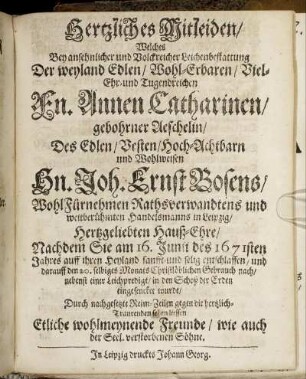 Hertzliches Mitleiden/
Welches
Bey ansehnlicher und Volckreicher Leichenbestattung
Der weyland Edlen/ Wohl-Erbaren/ Viel-
Ehr- und Tugendreichen
Fn. Annen Catharinen/
gebohrner Aeschelin/
Des Edlen/ Vesten/ Hoch-Achtbarn
und Wohlweisen
Hn. Joh. Ernst Bosens/
WohlFürnehmen Rathsverwandtens und
weitberühmten Handelsmanns in Leipzig/
Hertzgeliebten Hauß-Ehre/
Nachdem Sie am 16. Junii des 1671sten
Jahres auff ihren Heyland sanfft und selig entschlaffen/ und
darauff den 20. selbiges Monats Christlöblichen Gebrauch nach/
nebenst einer Leichpredigt/ in den Schoß der Erden
eingesencket wurde/
Durch nachgesetzte Reim-Zeilen gegen die hertzlich-
Traurenden sehen liessen
Etliche wohlmeynende Freunde/ wie auch
der Seel. verstorbenen Söhne.
In Leipzig druckts Johann Georg.